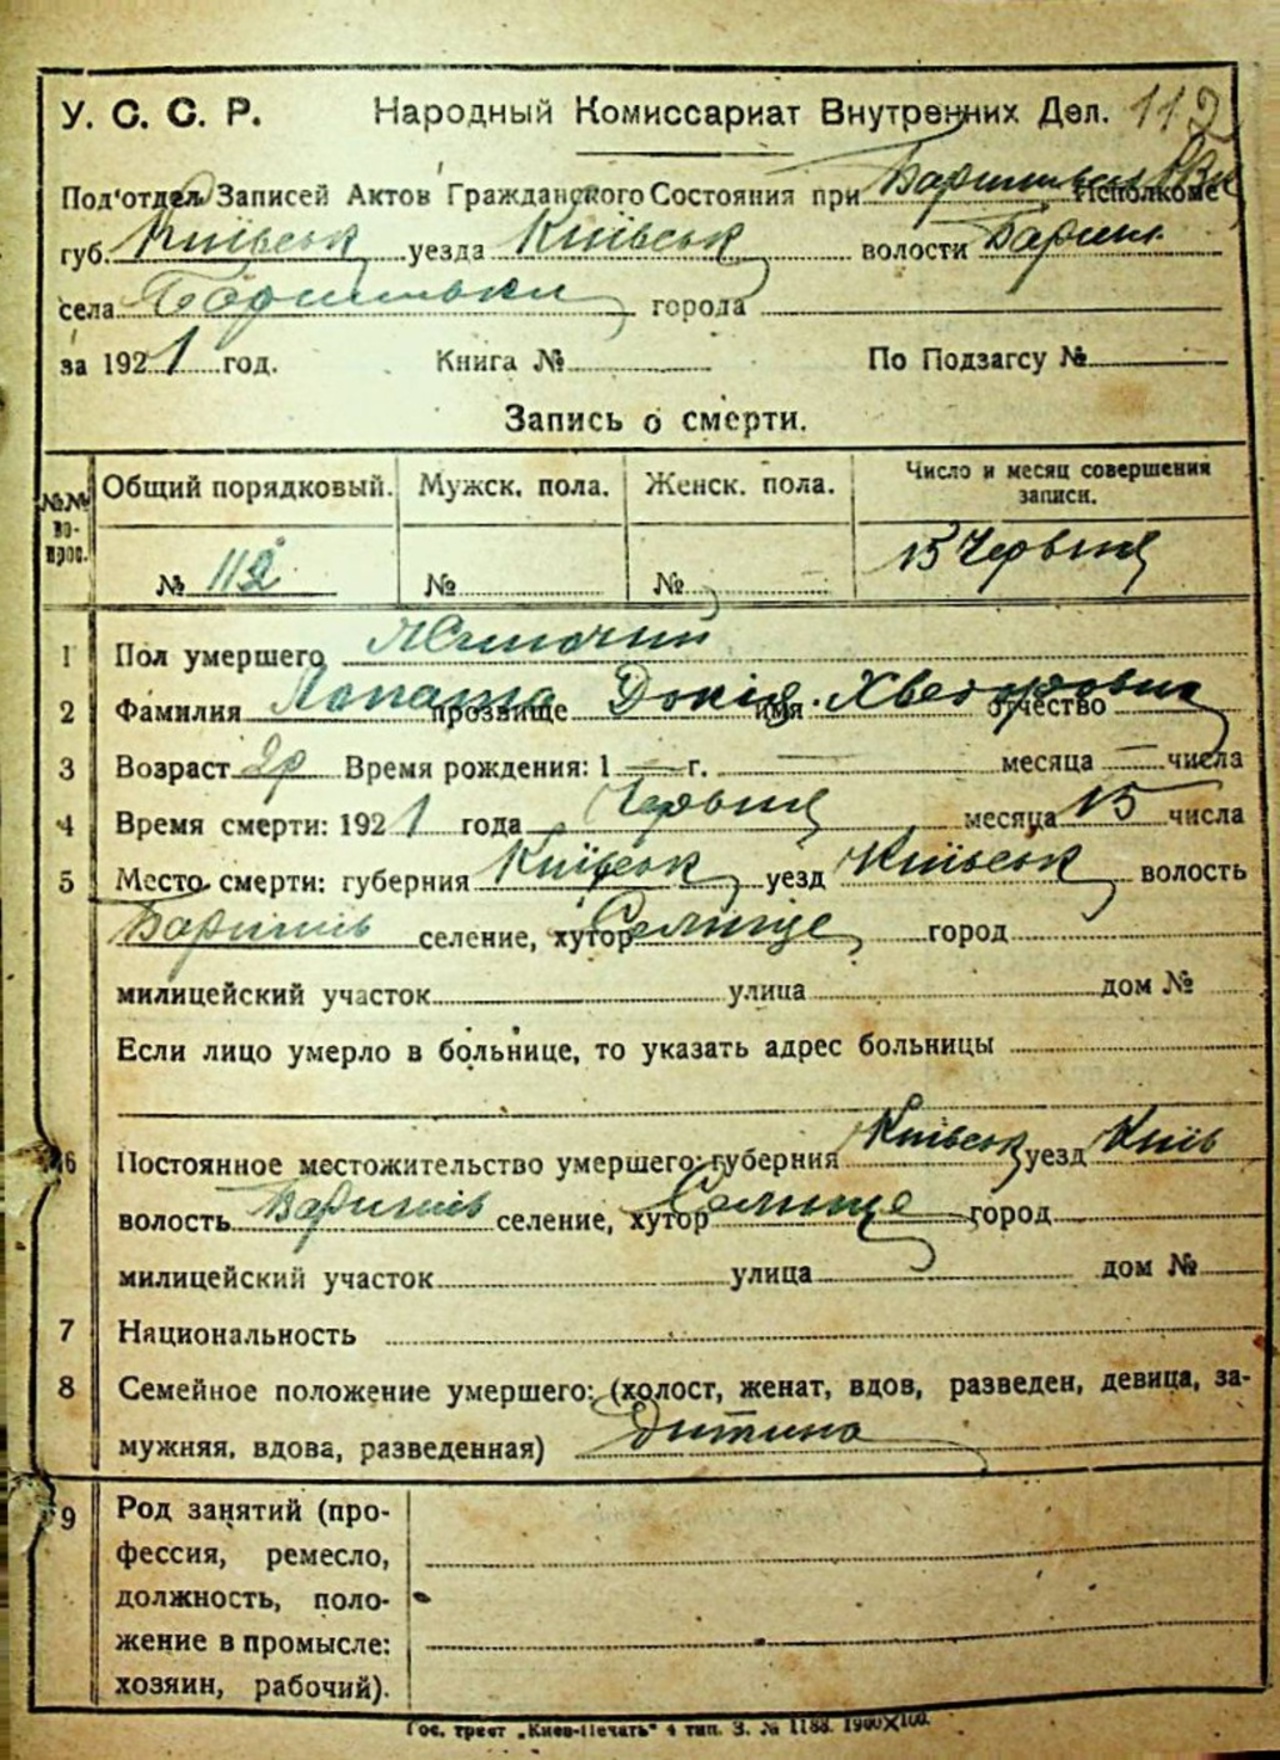 112
У. С. С. Р. Народный Комиссариат Внутренних Дел.
Под'отдел Записей Актов Гражданского Состояния при Исполкоме
губ. Київськ уезда Київськ волости Бариш.
села Баришівки города
за 1921 год. Книга № По Подзагсу №
Запись о смерти.
№№ вопрос. Общий порядковый. Мужск. пола. Женск. пола. Число и месяц совершения записи.
№ 112 № № 15 Червня
1 Пол умершего Жиночий
2 Фамилия прозвище Докія имя Хведоровна отчество
3 Возраст 2р Время рождения: 1 — г. — месяца — числа
4 Время смерти: 1921 года Червня месяца 15 числа
5 Место смерти: губерния Київськ уезд Київськ волость
Баришів селение, хутор Селище город
милицейский участок улица дом №
Если лицо умерло в больнице, то указать адрес больницы
6 Постоянное местожительство умершего: губерния Київськ уезд Київ
волость Баришів селение, хутор Селище город
милицейский участок улица дом №
7 Национальность
8 Семейное положение умершего: (холост, женат, вдов, разведен, девица, за-
мужняя, вдова, разведенная) Дитина
9 Род занятий (про-
фессия, ремесло,
должность, поло-
жение в промысле:
хозяин, рабочий).
Гос. трест „Киев-Печать" 4 тип. З. № 1188. 1900×100.